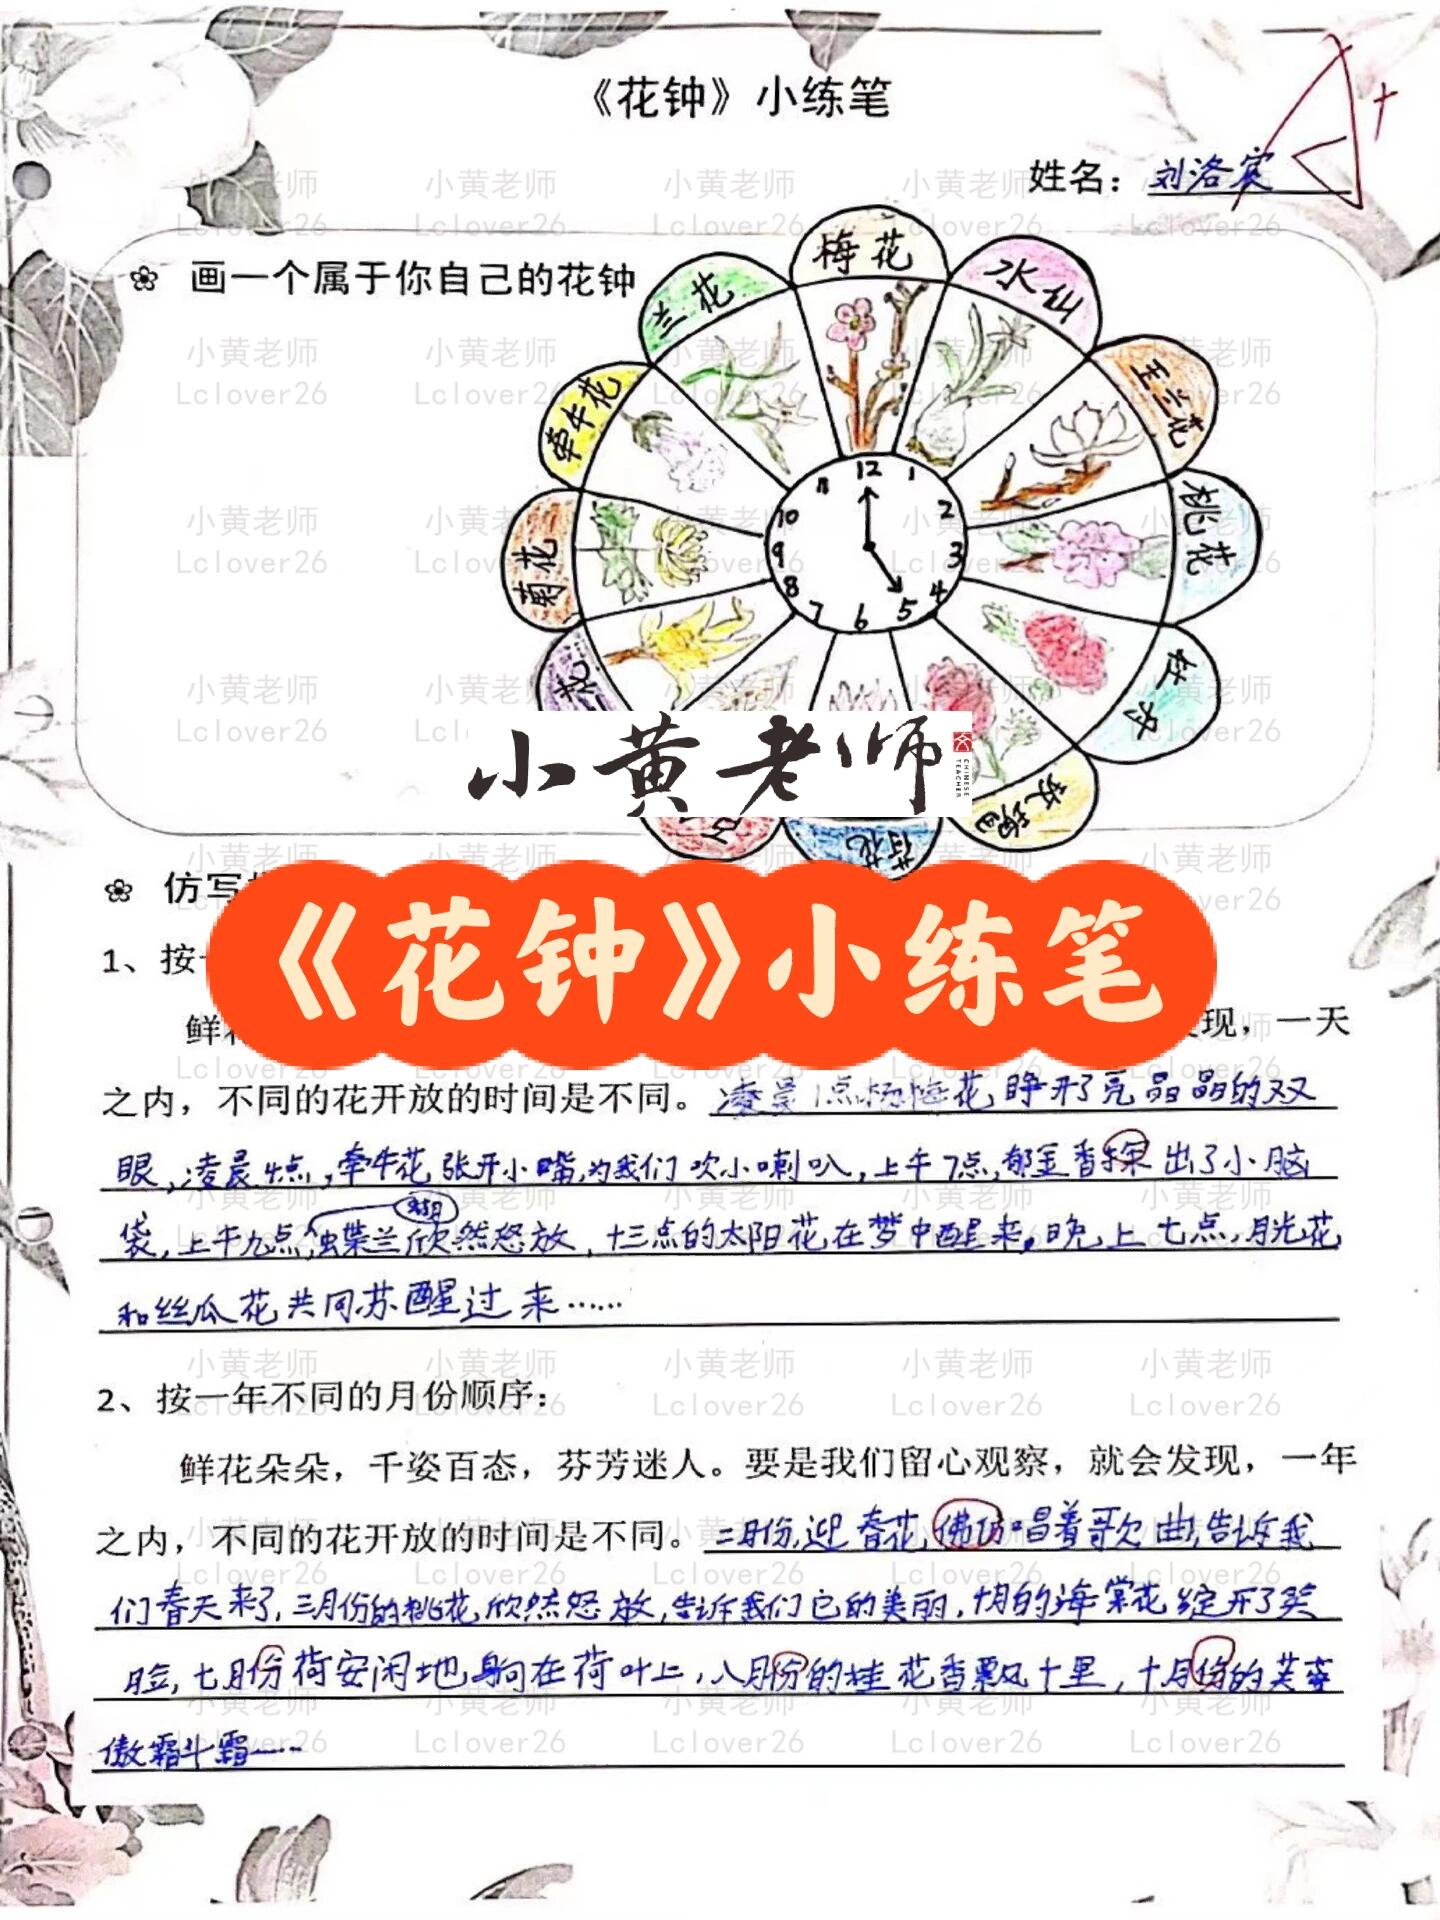 《花钟》小练笔
姓名：刘洛宾
画一个属于你自己的花钟
梅花
水仙
玉兰花
桃花
牡丹
玫瑰
荷花
菊花
牵牛花
兰花
12
1
2
3
4
5
6
7
8
9
10
11
小黄老师
CHINESE TEACHER
《花钟》小练笔
仿写
1、按一
鲜花 发现，一天
之内，不同的花开放的时间是不同。凌晨1点杨梅花睁开了亮晶晶的双
眼，凌晨4点，牵牛花张开小嘴，为我们吹小喇叭，上午7点，郁金香探出了小脑
袋，上午九点，蝴蝶兰欣然怒放，十三点的太阳花在梦中醒来，晚上七点，月光花
和丝瓜花共同苏醒过来……
2、按一年不同的月份顺序：
鲜花朵朵，千姿百态，芬芳迷人。要是我们留心观察，就会发现，一年
之内，不同的花开放的时间是不同。二月份，迎春花彿仿唱着歌曲，告诉我
们春天来了，三月份的桃花欣然怒放，告诉我们它的美丽，月的海棠花绽开了笑
脸，七月份荷安闲地躺在荷叶上，八月份的桂花香飘十里，十月份的芙蓉
傲霜斗霜……
小黄老师
Lclover26